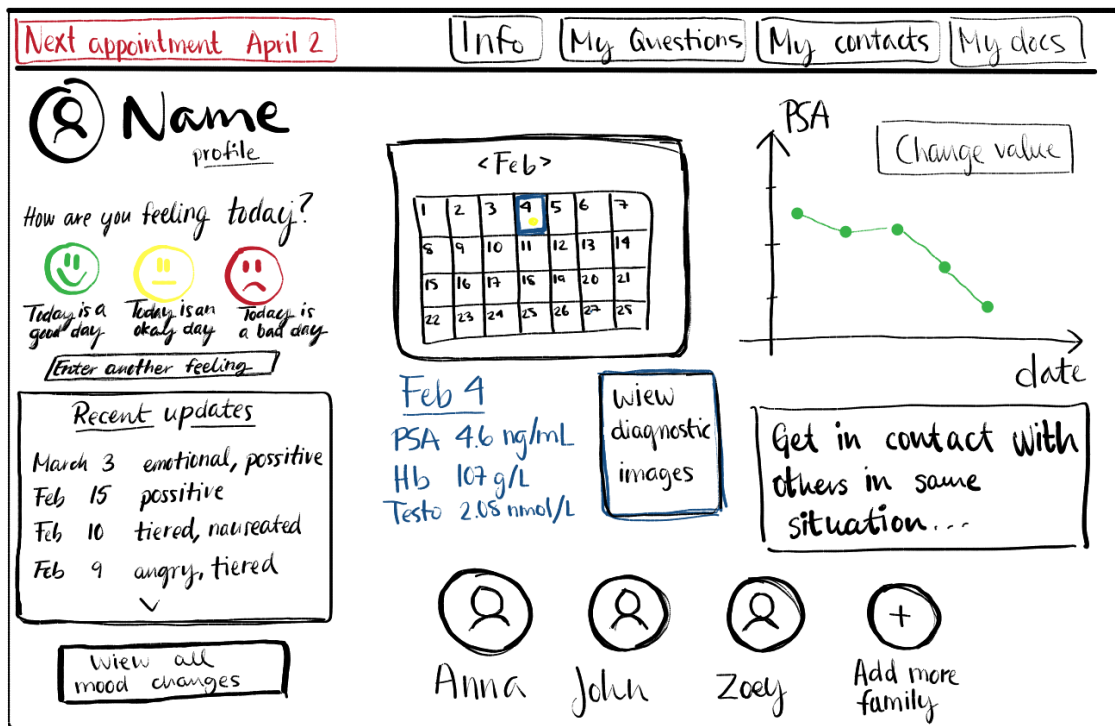 Next appointment April 2
Info
My Questions
My contacts
My docs
Name
profile
How are you feeling today?
Today is a
good day
Today is an
okay day
Today is
a bad day
Enter another feeling
Recent updates
March 3 emotional, possitive
Feb 15 possitive
Feb 10 tiered, nauseated
Feb 9 angry, tiered
wiew all
mood changes
<Feb>
1 2 3 4 5 6 7
8 9 10 11 12 13 14
15 16 17 18 19 20 21
22 23 24 25 26 27 28
Feb 4
PSA 4.6 ng/mL
Hb 107 g/L
Testo 2.08 nmol/L
wiew
diagnostic
images
PSA
Change value
date
Get in contact with
others in same
situation...
Anna
John
Zoey
+
Add more
family